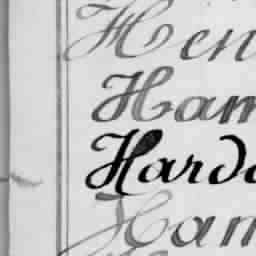 Hen
Ham
Hard
Ham